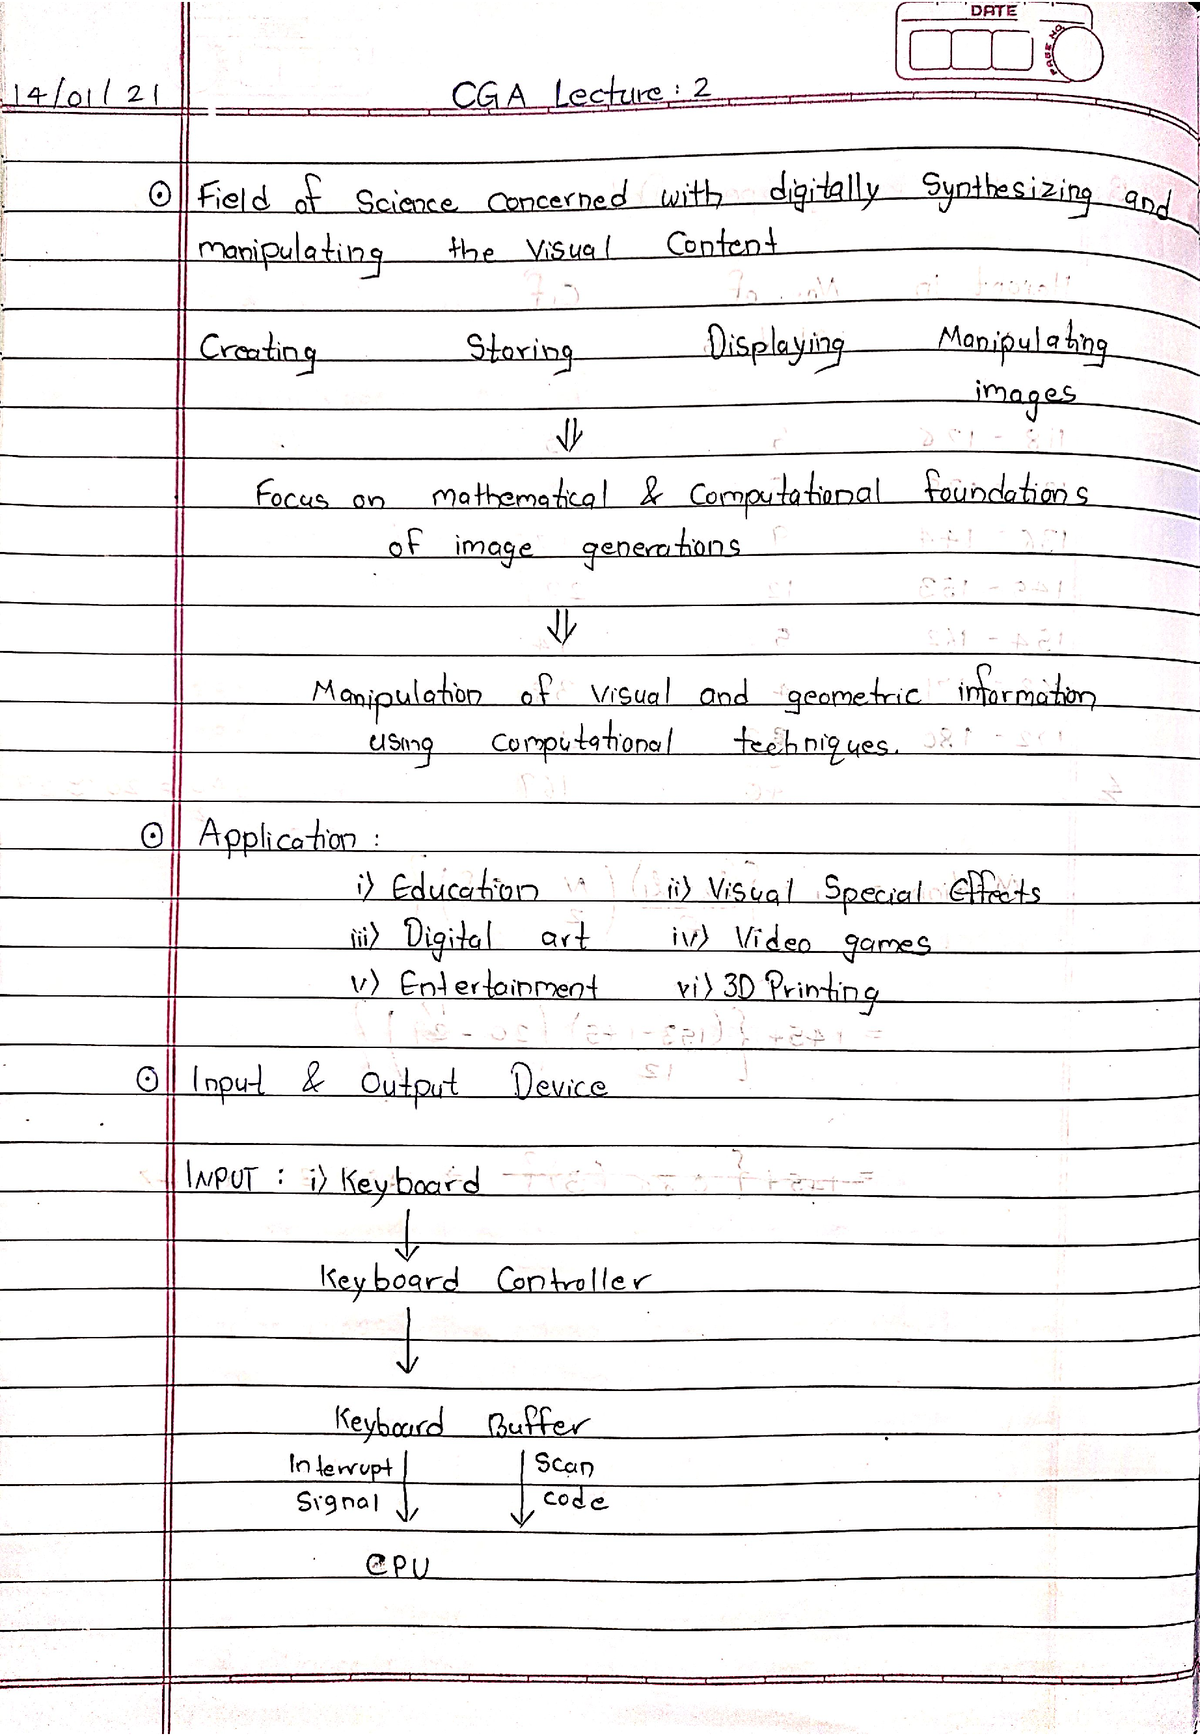 DATE
PAGE NO.
14/01/21 CGA Lecture: 2
⊙ Field of Science Concerned with digitally Synthesizing and
manipulating the Visual Content
Creating Storing Displaying Manipulating
images
⇓
Focus on mathematical & Computational foundations
of image generations
⇓
Manipulation of visual and geometric information
using computational techniques.
⊙ Application :
i) Education ii) Visual Special Effects
iii) Digital art iv) Video games
v) Entertainment vi) 3D Printing
⊙ Input & Output Device
INPUT : i) Keyboard
↓
Keyboard Controller
↓
Keyboard Buffer
Interrupt ↓ Scan
Signal ↓ code
CPU